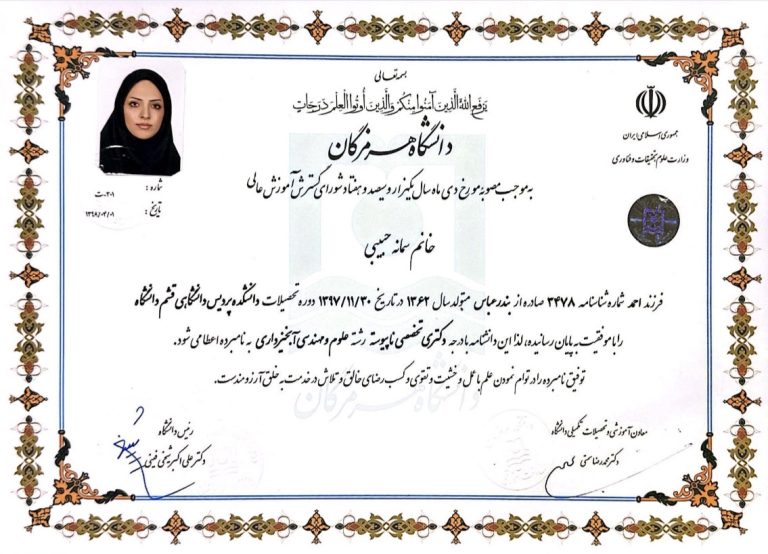 بسمه تعالی
یرفع الله الذین آمنوا منکم والذین اوتوا العلم درجات
جمهوری اسلامی ایران
وزارت علوم تحقیقات و فناوری
دانشگاه هرمزگان
شماره :
۲۰۹-ت
تاریخ :
۱۳۹۸/۰۲/۰۱
به موجب مصوبه مورخ دی ماه سال یکهزار و سیصد و هفتاد شورای گسترش آموزش عالی
خانم سمانه حبیبی
فرزند احمد شماره شناسنامه ۳۴۷۸ صادره از بندرعباس متولد سال ۱۳۶۲ در تاریخ ۱۳۹۷/۱۱/۳۰ دوره تحصیلات دانشکده پردیس دانشگاهی قشم دانشگاه
را با موفقیت به پایان رسانیده، لذا این دانشنامه با درجه دکتری تخصصی ناپیوسته رشته علوم و مهندسی آبخیزداری به نامبرده اعطا می شود.
توفیق نامبرده را در توام نمودن علم با عمل و خشیت و تقوی و کسب رضای خالق و تلاش در خدمت به خلق آرزومندست.
معاون آموزشی و تحصیلات تکمیلی دانشگاه
دکتر محمدرضا
رئیس دانشگاه
دکتر علی اکبر شیخی فینی
دانشگاه هرمزگان